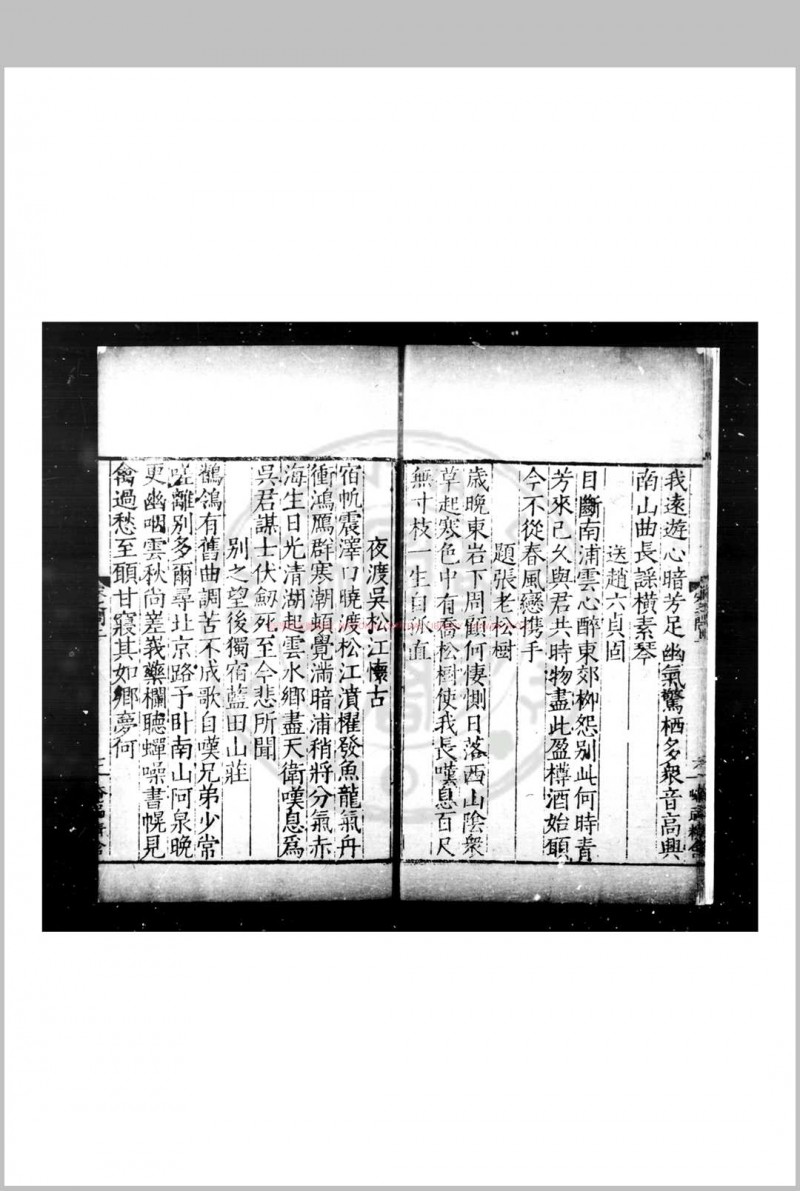 我遠遊心暗芳足幽氣驚栖多衆音高興
南山曲長謡橫素琴
送趙六貞固
目斷南浦雲心醉東郊栁怨别此何時青
芳來已久與君共時物盡此盈樽酒始願
今不從春風戀携手
題張老松樹
歲晚東岩下周顧何悽惻日落西山陰衆
草起寒色中有喬松樹使我長嘆息百尺
無寸枝一生自孤直
夜渡吳松江懷古
宿帆震澤口曉渡松江濆櫂發魚龍氣舟
衝鴻鴈群寒潮頓覺滿暗浦稍將分氣赤
海生日光清湖起雲水鄉盡天衛嘆息爲
吳君謀士伏劒死至今悲所聞
别之望後獨宿藍田山莊
鶺鴒有舊曲調苦不成歌自嘆兄弟少常
嗟離别多爾尋北京路予卧南山阿泉晚
更幽咽雲秋尚嵯峩藥欄聽蟬噪書幌見
禽過愁至願甘寢其如鄉夢何